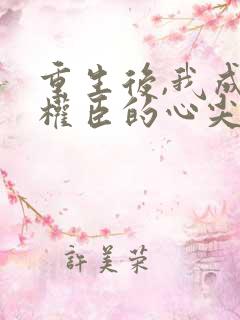 重生後,我成
權臣的心尖
許美荣